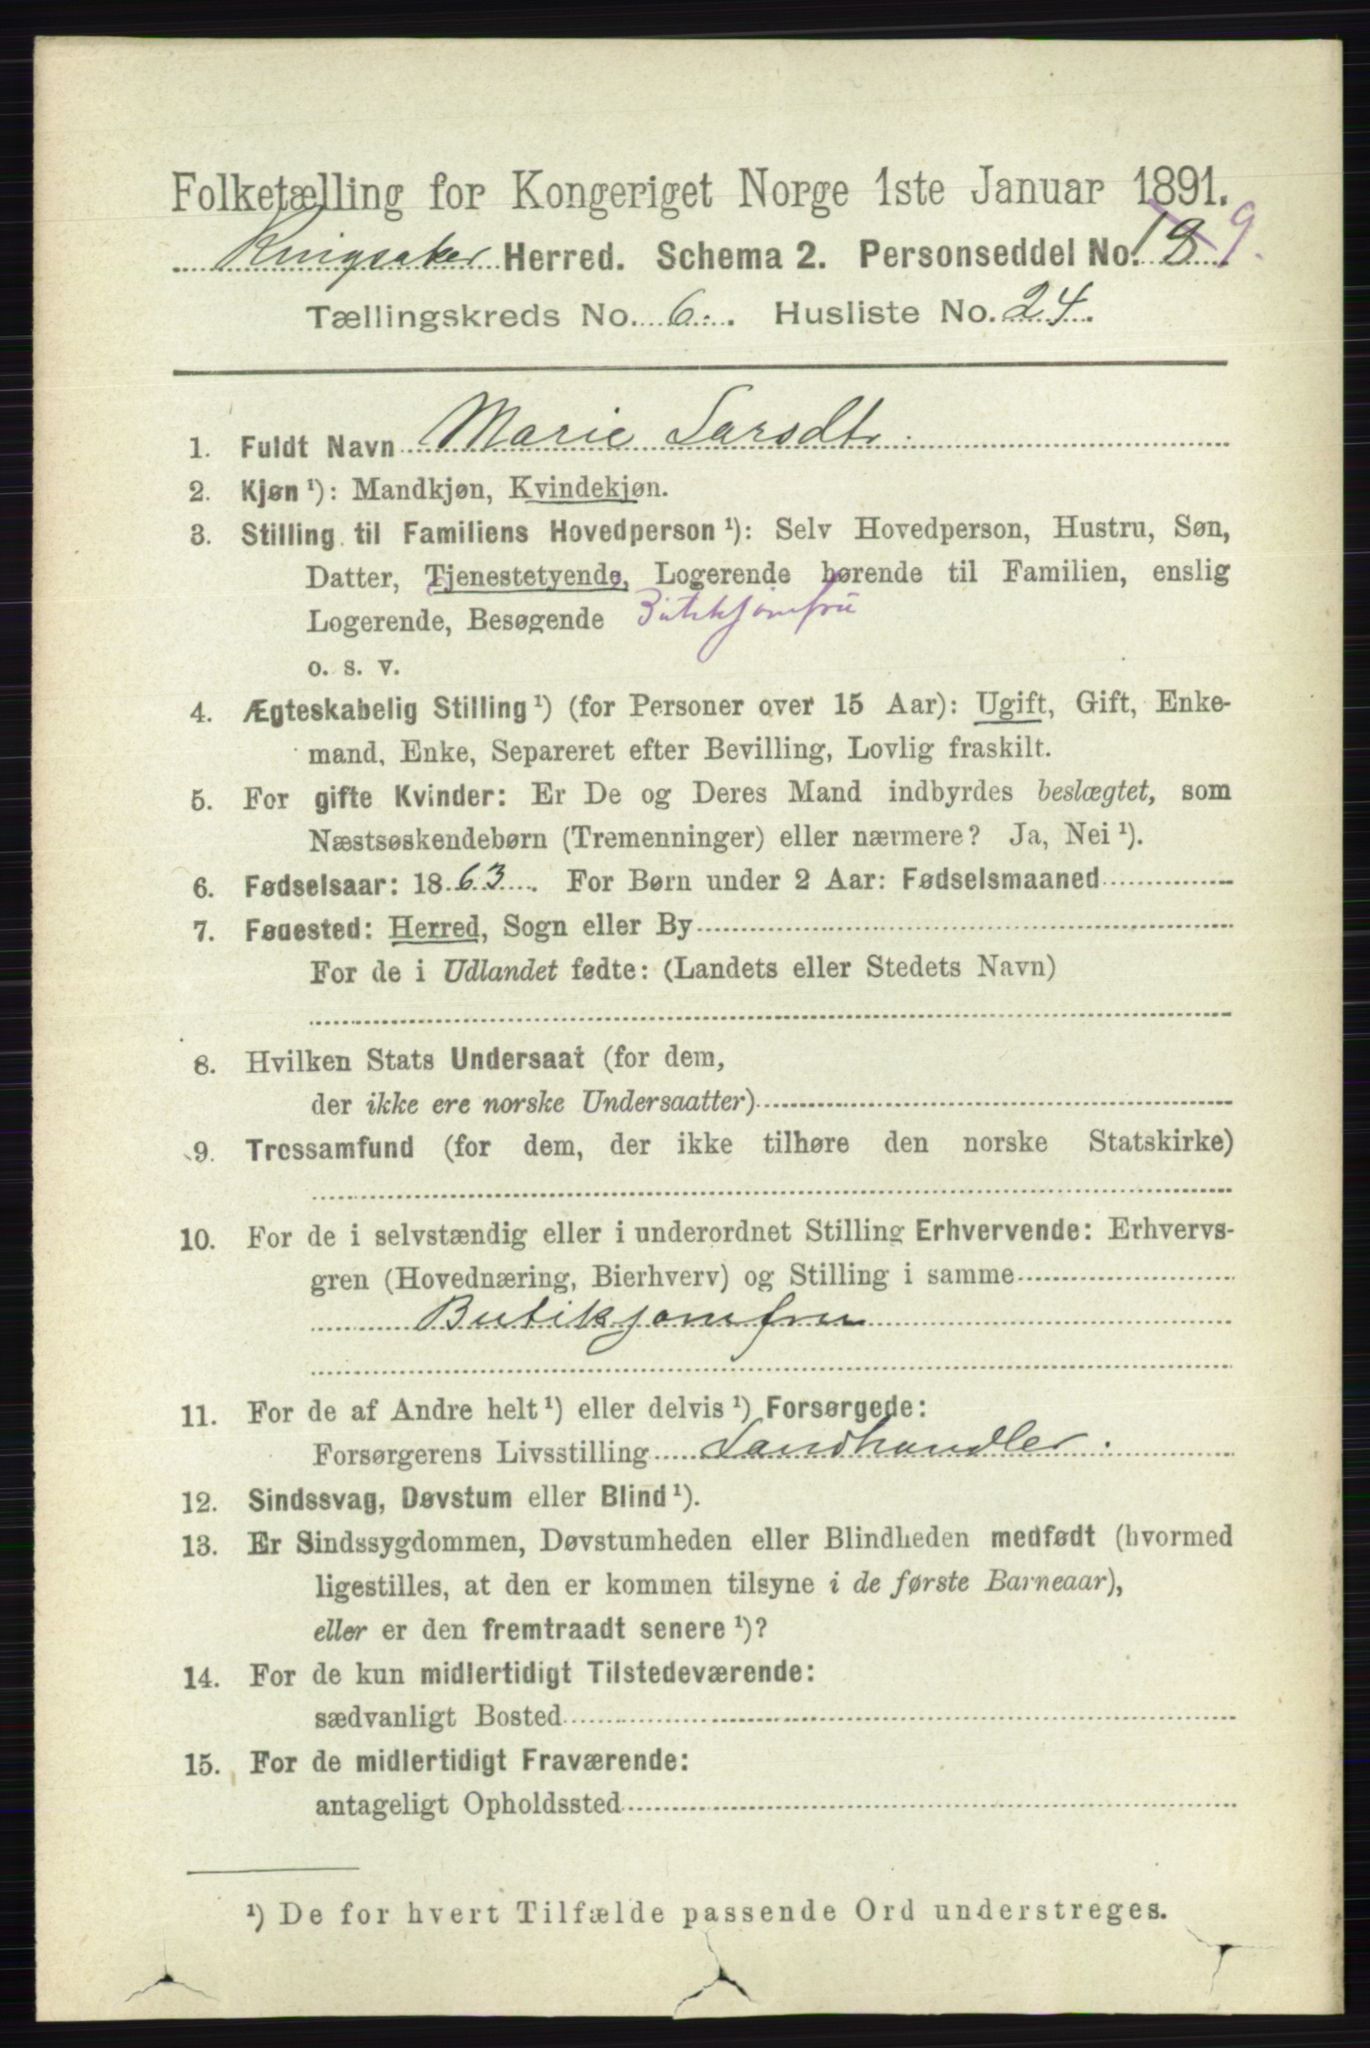 Folketælling for Kongeriget Norge 1ste Januar 1891.
Ringsaker Herred. Schema 2. Personseddel No. 18 9.
Tællingskreds No. 6. Husliste No. 24.
1. Fuldt Navn Marie Larsdtr.
2. Kjøn ¹): Mandkjøn, Kvindekjøn.
3. Stilling til Familiens Hovedperson ¹): Selv Hovedperson, Hustru, Søn,
Datter, Tjenestetyende, Logerende hørende til Familien, enslig
Logerende, Besøgende Butikkjomfru
o. s. v.
4. Ægteskabelig Stilling ¹) (for Personer over 15 Aar): Ugift, Gift, Enke-
mand, Enke, Separeret efter Bevilling, Lovlig fraskilt.
5. For gifte Kvinder: Er De og Deres Mand indbyrdes beslægtet, som
Næstsøskendebørn (Tremenninger) eller nærmere? Ja, Nei ¹).
6. Fødselsaar: 1863. For Børn under 2 Aar: Fødselsmaaned
7. Fødested: Herred, Sogn eller By
For de i Udlandet fødte: (Landets eller Stedets Navn)
8. Hvilken Stats Undersaat (for dem,
der ikke ere norske Undersaatter)
9. Trossamfund (for dem, der ikke tilhøre den norske Statskirke)
10. For de i selvstændig eller i underordnet Stilling Erhvervende: Erhvervs-
gren (Hovednæring, Bierhverv) og Stilling i samme
Butiksjomfru
11. For de af Andre helt ¹) eller delvis ¹) Forsørgede:
Forsørgerens Livsstilling Landhandler.
12. Sindssvag, Døvstum eller Blind ¹).
13. Er Sindssygdommen, Døvstumheden eller Blindheden medfødt (hvormed
ligestilles, at den er kommen tilsyne i de første Barneaar),
eller er den fremtraadt senere ¹)?
14. For de kun midlertidigt Tilstedeværende:
sædvanligt Bosted
15. For de midlertidigt Fraværende:
antageligt Opholdssted
¹) De for hvert Tilfælde passende Ord understreges.